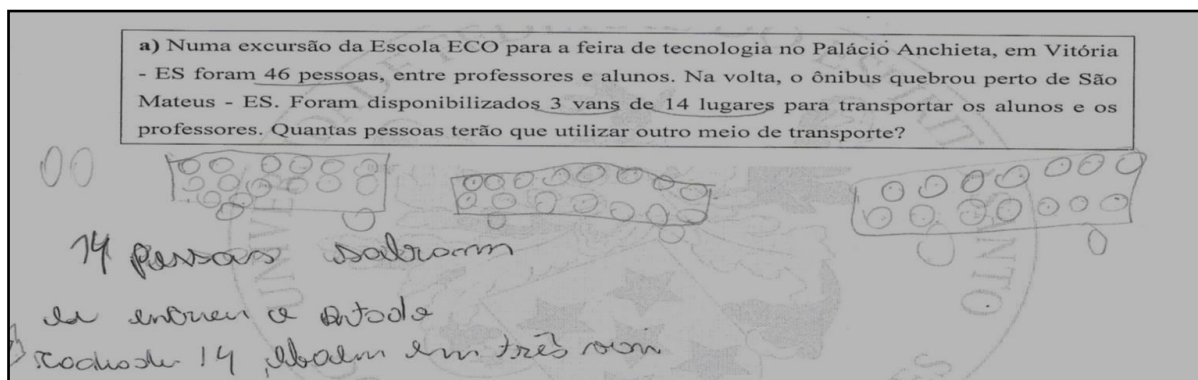 a) Numa excursão da Escola ECO para a feira de tecnologia no Palácio Anchieta, em Vitória
- ES foram 46 pessoas, entre professores e alunos. Na volta, o ônibus quebrou perto de São
Mateus - ES. Foram disponibilizados 3 vans de 14 lugares para transportar os alunos e os
professores. Quantas pessoas terão que utilizar outro meio de transporte?
14 pessoas sobrom
14 em três